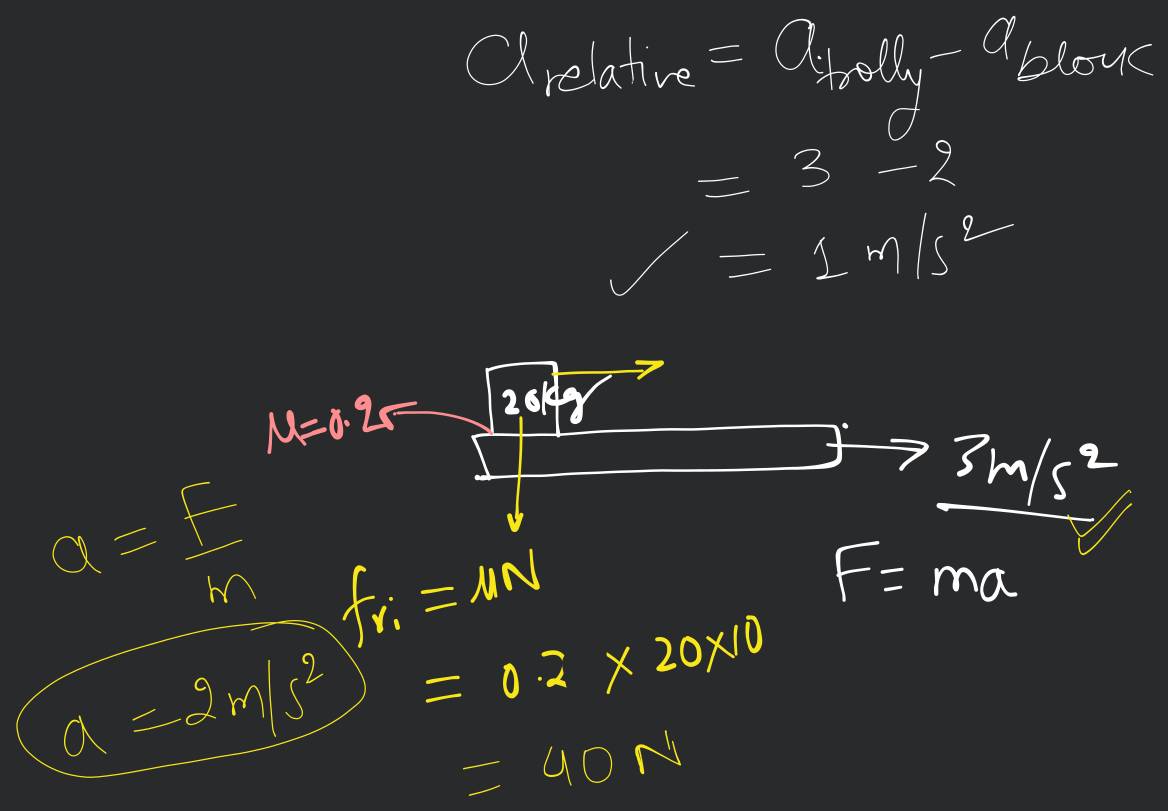 a relative = a trolly - a block
= 3 - 2
✓ = 1 m/s²
20kg
3m/s²
a = F/m
fri = μN
F = ma
= 0.2 × 20×10
a = 2 m/s²
= 40 N